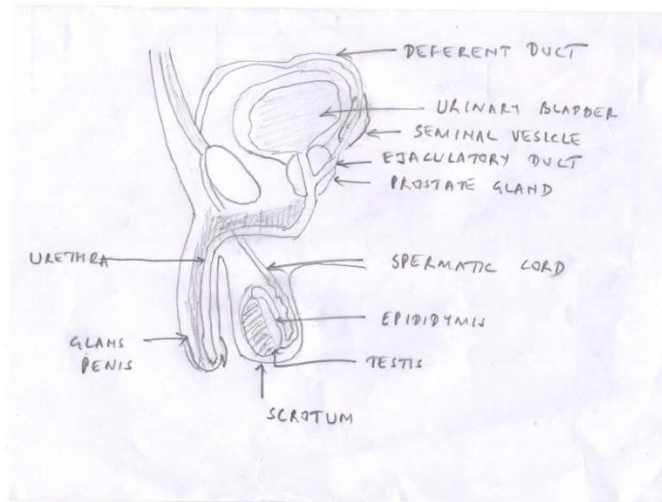 DEFERENT DUCT
URINARY BLADDER
SEMINAL VESICLE
EJACULATORY DUCT
PROSTATE GLAND
URETHRA
SPERMATIC CORD
EPIDIDYMIS
GLANS
PENIS
TESTIS
SCROTUM